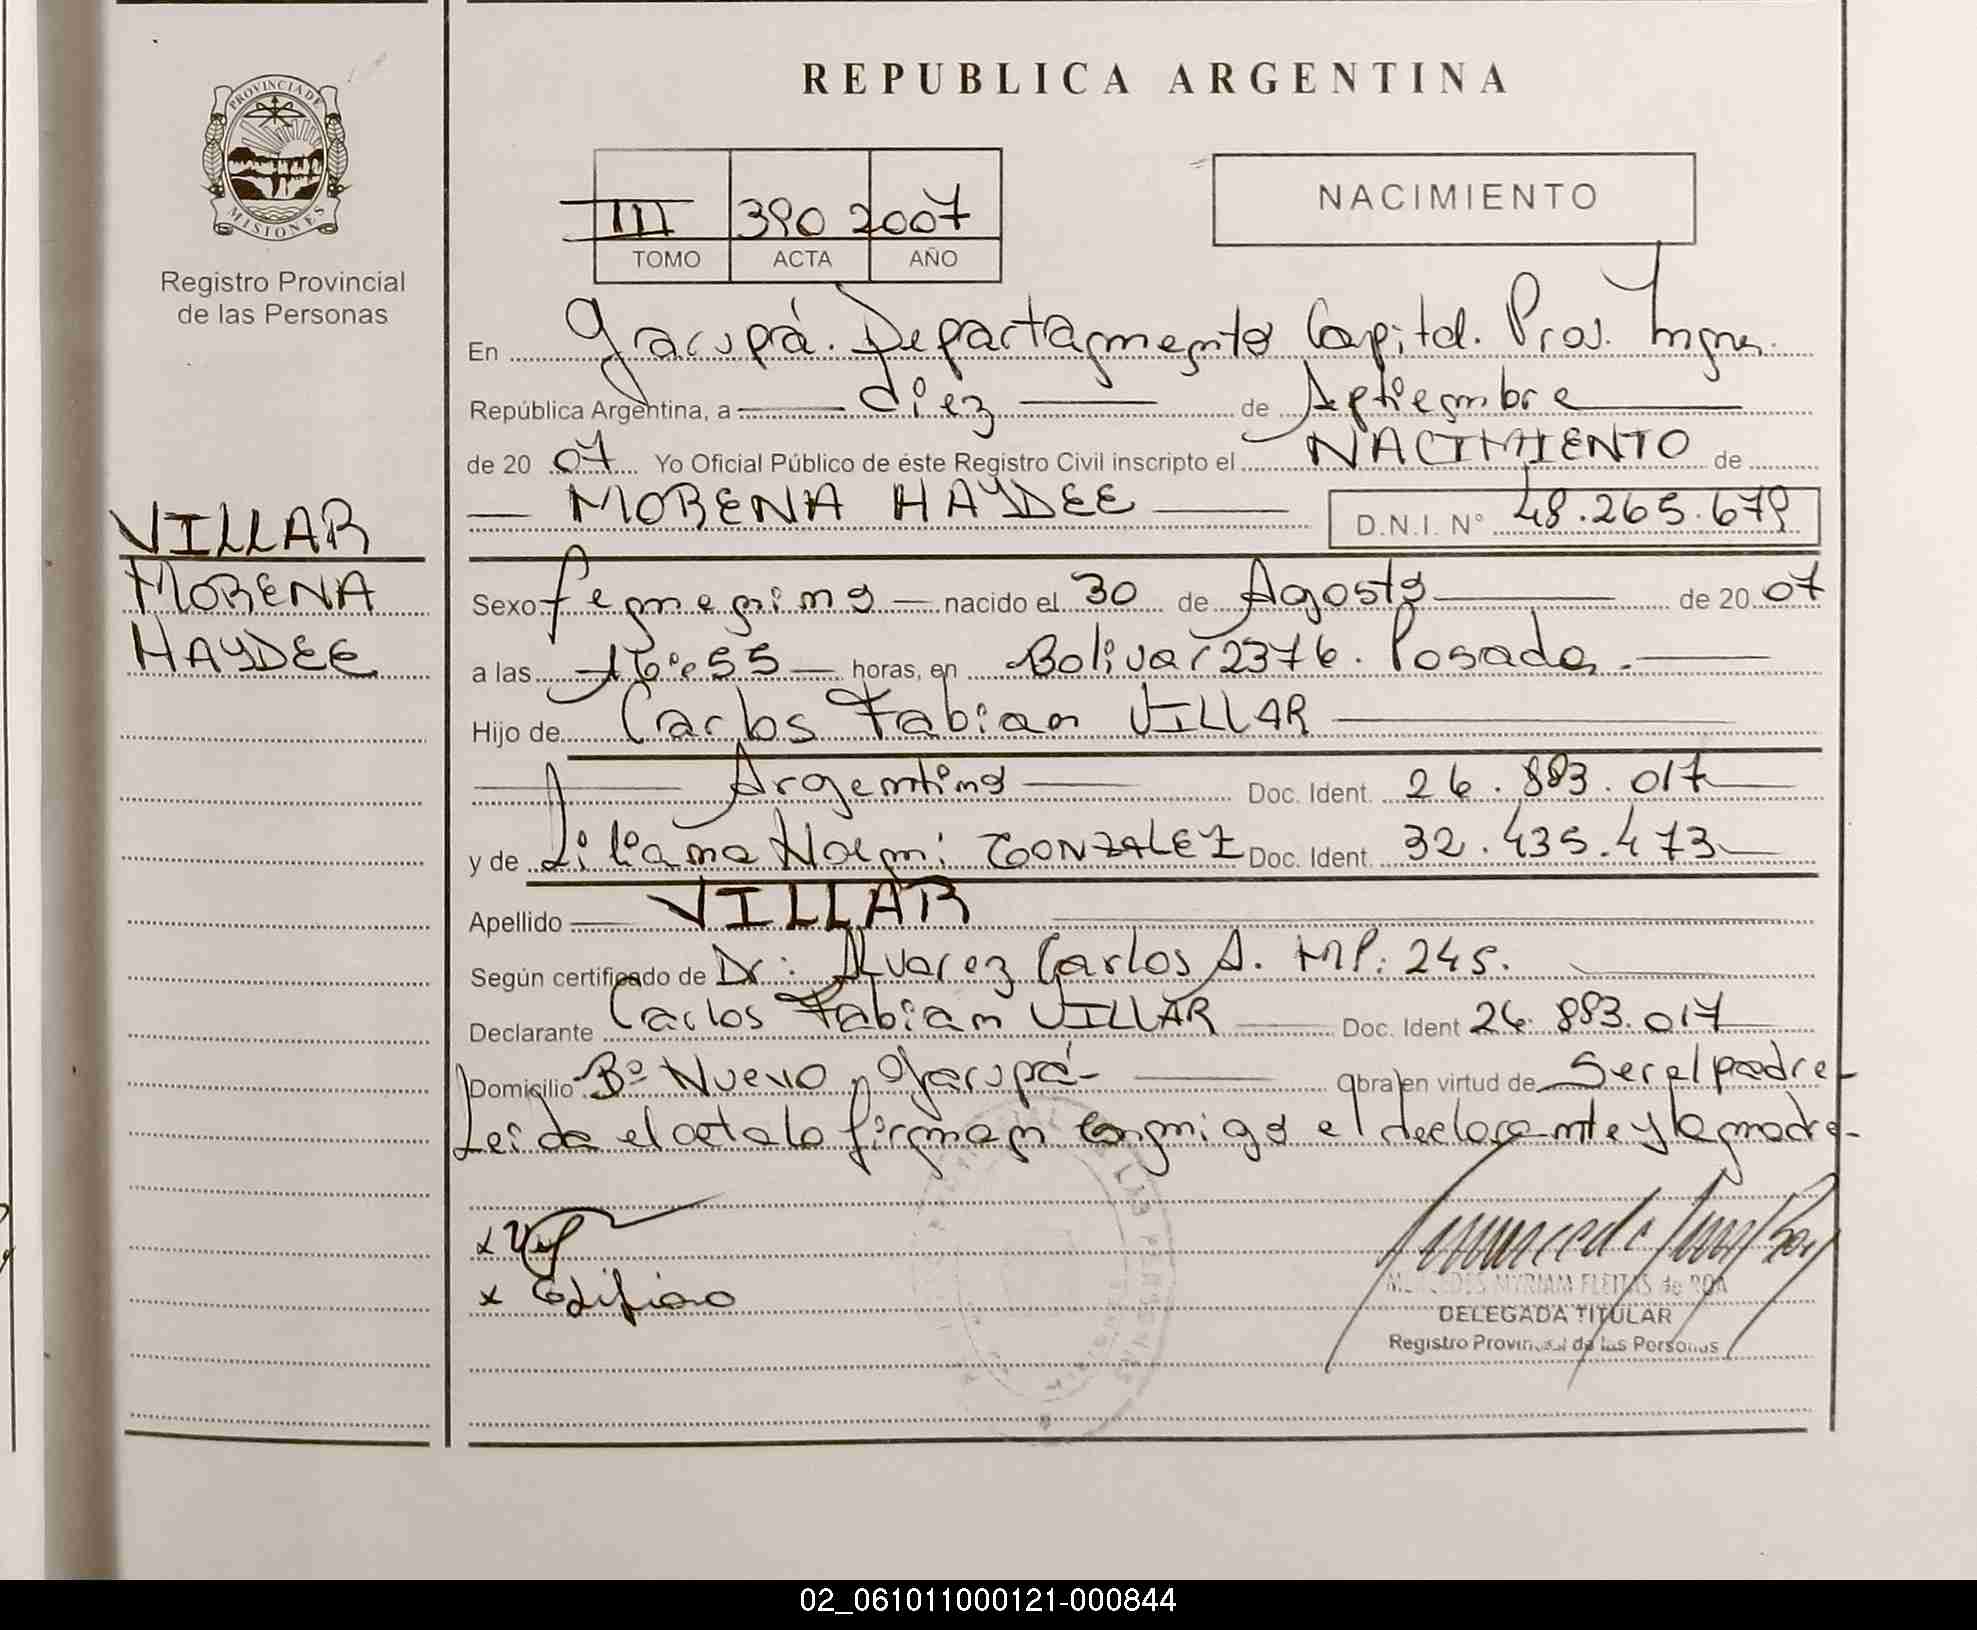 PROVINCIA DE
MISIONES
Registro Provincial
de las Personas
VILLAR
MORENA
HAYDEE
REPUBLICA ARGENTINA
III 390 2007
TOMO ACTA AÑO
NACIMIENTO
En Garupá. Departamento Capital. Prov. Mnes.
República Argentina, a diez de Septiembre
de 20 07 Yo Oficial Público de éste Registro Civil inscripto el NACIMIENTO de
MORENA HAYDEE D.N.I. N° 48.265.679
Sexo femenino nacido el 30 de Agosto de 20 07
a las 16:55 horas, en Bolivar 2376. Posadas.
Hijo de Carlos Fabian VILLAR
Argentino Doc. Ident. 26.883.017
y de Liliana Noemi GONZALEZ Doc. Ident. 32.435.473
Apellido VILLAR
Según certificado de Dr: Alvarez Carlos A. MP: 245.
Declarante Carlos Fabian VILLAR Doc. Ident 26.883.017
Domicilio Bº Nuevo, Garupá- Obra en virtud de Ser el padre-
Leida el acta la firman conmigo el declarante y la madre-
x
x
MERCEDES MYRIAM FLEITAS de ROA
DELEGADA TITULAR
Registro Provincial de las Personas
02_061011000121-000844